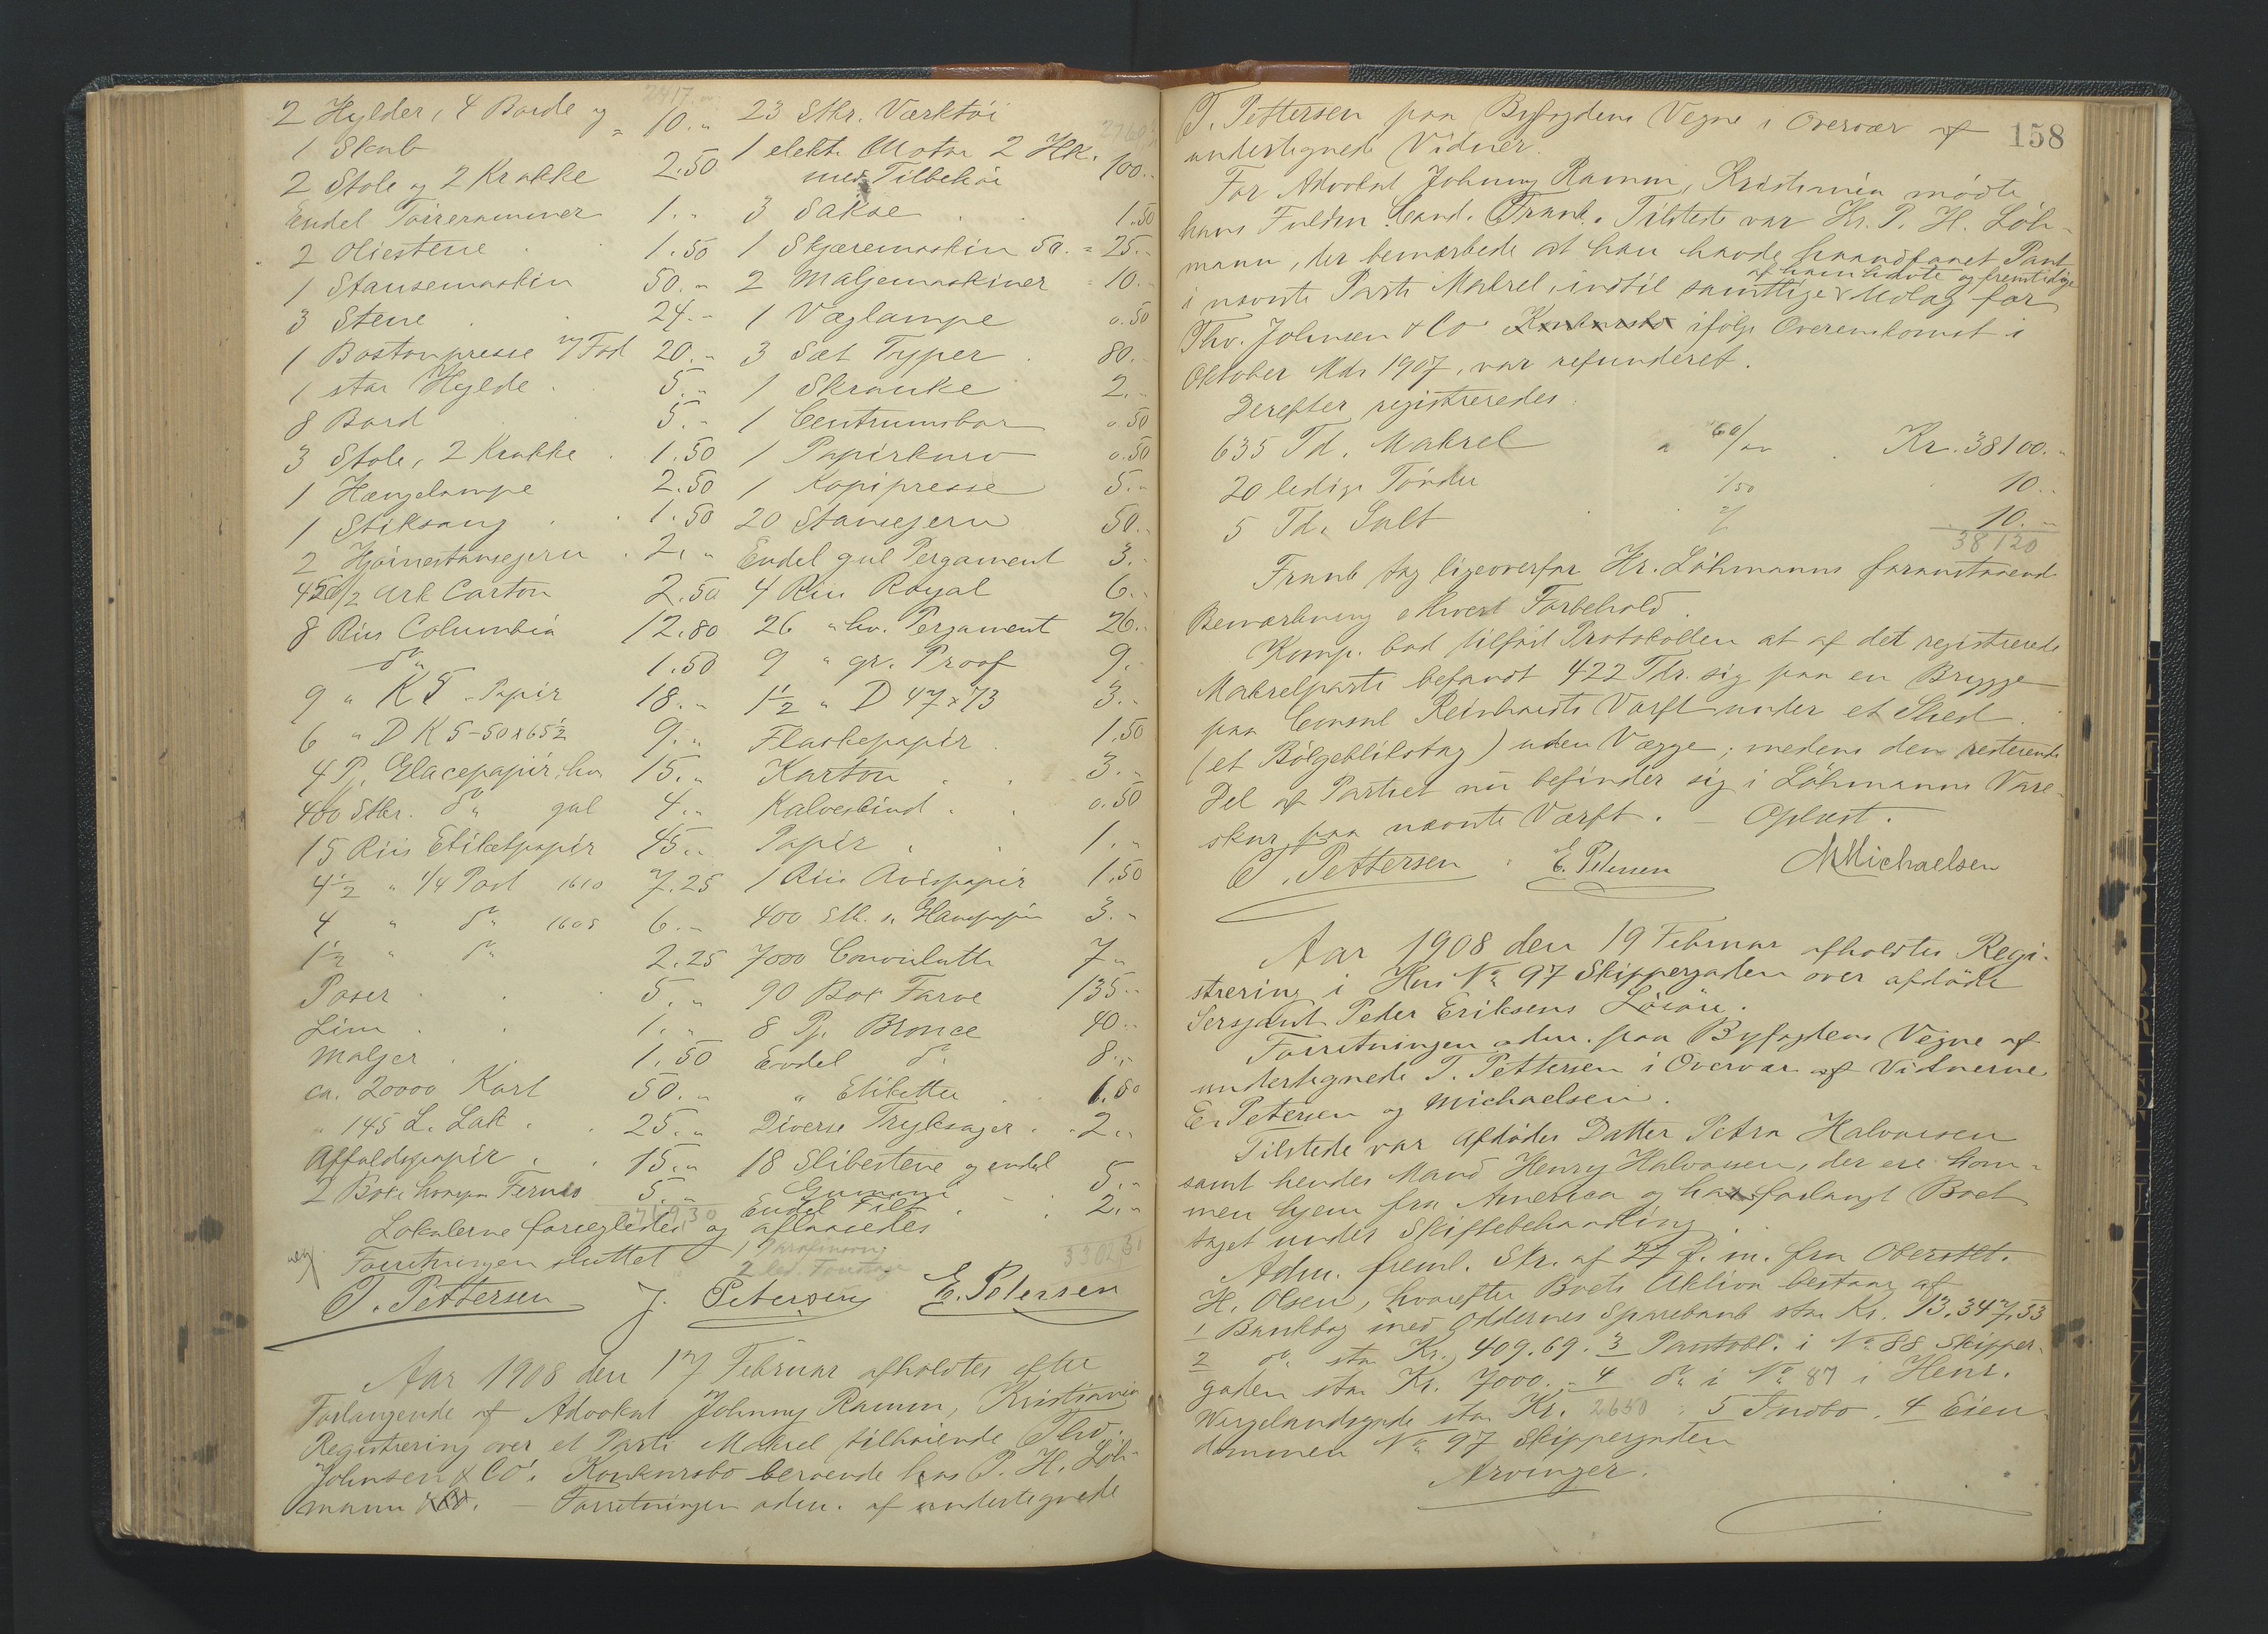 2417."
2 Hylder, 4 Borde og
1 Skab " 10. "
2 Stole og 2 Krakke 2.50
Endel Tørrerammer 1. "
2 Oliestene . 1.50
1 Stansemaskin 50. "
3 Stene . 24. "
1 Bostonpresse m/ Fod 20. "
1 stor Hylde . 5. "
8 Bord 5. "
3 Stole, 2 Krakke . 1.50
1 Hængelampe 2.50
1 Stiksaug . . 1.50
2 Hjørnestansejern . 2. "
450 1/2 Ark Carton 2.50
8 Riis Columbia 12.80
do 1.50
9 " K T. Papir 18. "
6 " D K 5 - 50 x 65 1/2 9. "
4 P. Glacepapir, hv. 15. "
400 Stkr. do gul 4. "
15 Riis Etiketpapir 45. "
4 1/2 " 1/4 Post 1610 7.25
4 " do 1605 6. "
1 1/2 " do 2.25
Poser . . . 5. "
Lim . . 1. "
Maljer . . 1.50
ca. 20000 Kort 50. "
" 145 L. Lak . . 25. "
Affaldspapir . . 15. "
2 Boxe Fernis 5. "
23 Stkr. Værktøi
1 elektr. Motor 2 HK.
med Tilbehør 100. "
3 Sakse . . 1.50
1 Skjæremaskin 25. "
2 Maljemaskiner 10. "
1 Væglampe 0.50
3 Sæt Typer . 80. "
1 Skranke 2. "
1 Centrumsbor 0.50
1 Papirkurv 0.50
1 Kopipresse 5. "
20 Stansejern 50. "
Endel gul Pergament 3. "
4 Riis Royal 6. "
26 " hv. Pergament 26. "
9 " gr. Proof 9. "
1 1/2 " D 47 x 73 3. "
Flaskepapir . 1.50
Karton . . 3. "
Kalveskind . . 0.50
Papir . . 1. "
1 Riis Avispapir 1.50
400 Stk. 3. "
7000 Convolutte 7 "
90 Box Farve 135 "
8 P. Bronce 40 "
Endel do 8. "
" Etiketter . . 1.50
Diverse Tryksager . . 2. "
18 Slibestene og endel
Gummi 5. "
Endel Filt . . 2. "
Lokalerne forsegledes og aflaasedes
Forretningen sluttet
T. Pettersen J. Petersen E. Petersen
Aar 1908 den 17 Februar afholdtes efter
Forlangende af Advokat Johnny Ramm, Kristiania
Registrering over et Parti Makrel tilhørende Thv.
Johnsen & Co's. Konkursbo beroende hos P. H. Löh-
mann & Co. – Forretningen adm. af undertegnede
158
T. Pettersen paa Byfogdens Vegne i Overvær af
undertegnede Vidner.
For Advokat Johnny Ramm, Kristiania mødte
hans Fuldm. Cand. Frank. Tilstede var Hr. P. H. Löh-
mann, der bemærkede at han havde haandfaaet Pant
i nævnte Parti Makrel, indtil samtlige af ham havte og fremtidige Udlæg for
Thv. Johnsen & Co Konkursbo ifølge Overenskomst i
Oktober Md. 1907, var refunderet.
Derefter registreredes:
635 Td. Makrel a 60/00 . Kr. 38100. "
20 ledige Tønder "/50 10. "
5 Td. Salt 2/ 10. "
38120
Frank tog ligeoverfor Hr. Löhmanns foranstaaende
Bemærkning ethvert Forbehold.
Komp. bad tilført Protokollen at af det registrerede
Makrelparti befandt 422 Tdr. sig paa en Brygge
paa Consul Reinhardts Værft under et Sked
(et Bølgebliktag) uden Vægge; medens den resterende
Del af Partiet nu befinder sig i Löhmanns Vare-
skur paa nævnte Værft. – Oplæst.
T. Pettersen E. Petersen M Michaelsen
Aar 1908 den 19 Februar afholdtes Regi-
strering i Hus No 97 Skippergaden over afdøde
Sersjant Peder Eriksens Løsøre.
Forretningen adm. paa Byfogdens Vegne af
undertegnede T. Pettersen i Overvær af Vidnerne
E. Petersen og Michaelsen.
Tilstede var Afdødes Datter Petra Halvorsen
samt hendes Mand Henry Halvorsen, der ere kom-
men hjem fra America og har forlangt Boet
taget under Skiftebehandling.
Adm. freml. Skr. af 27 f. m. fra Oberstlt.
H. Olsen, hvorefter Boets Aktiva bestaar af
1 Bankbog med Oddernes Sparebank stor Kr. 13.347,53
2 do stor Kr. 409.69. 3 Pantobl. i No 88 Skipper-
gaden stor Kr. 7000. – 4 do i No 87 i Henr.
Wergelandsgade stor Kr. 2650 . 5 Indbo. 4 Eien-
dommen No 97 Skippergaden
Arvinger.